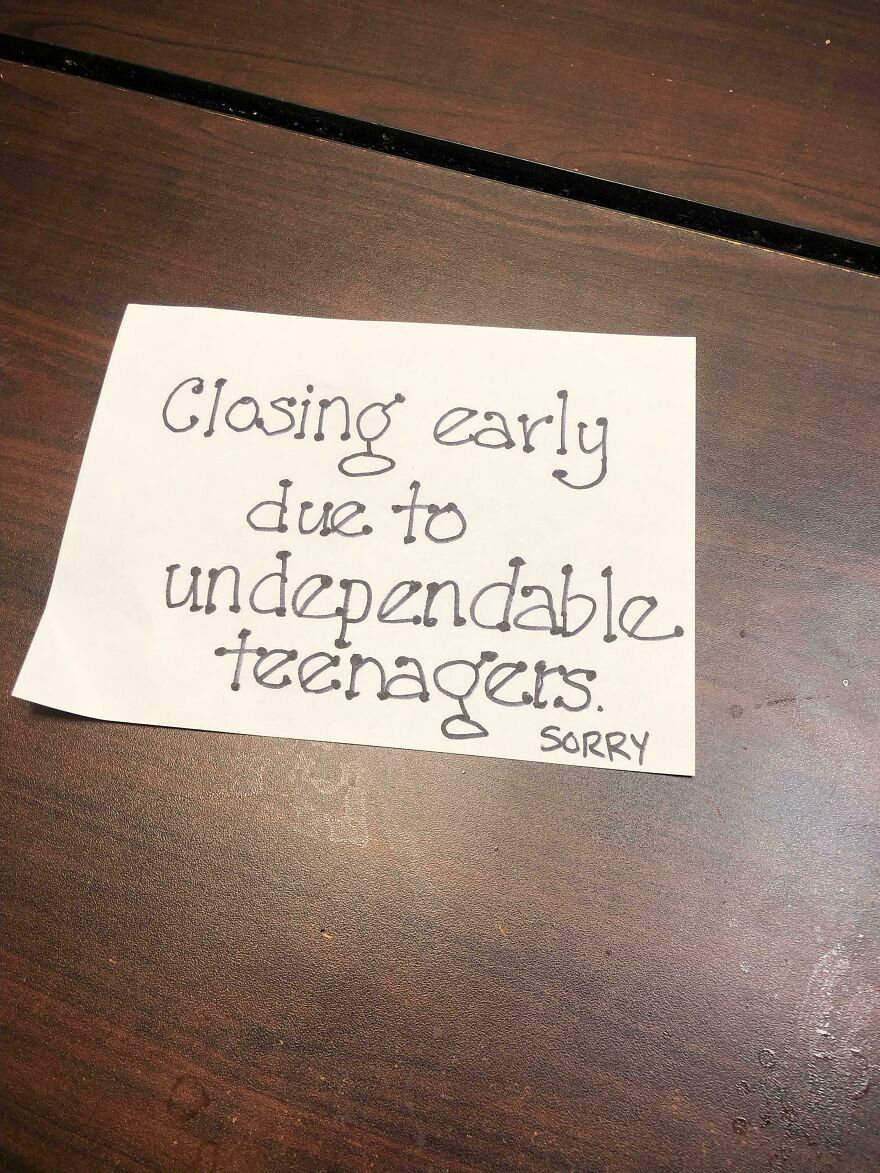 Closing early
due to
undependable
teenagers.
SORRY